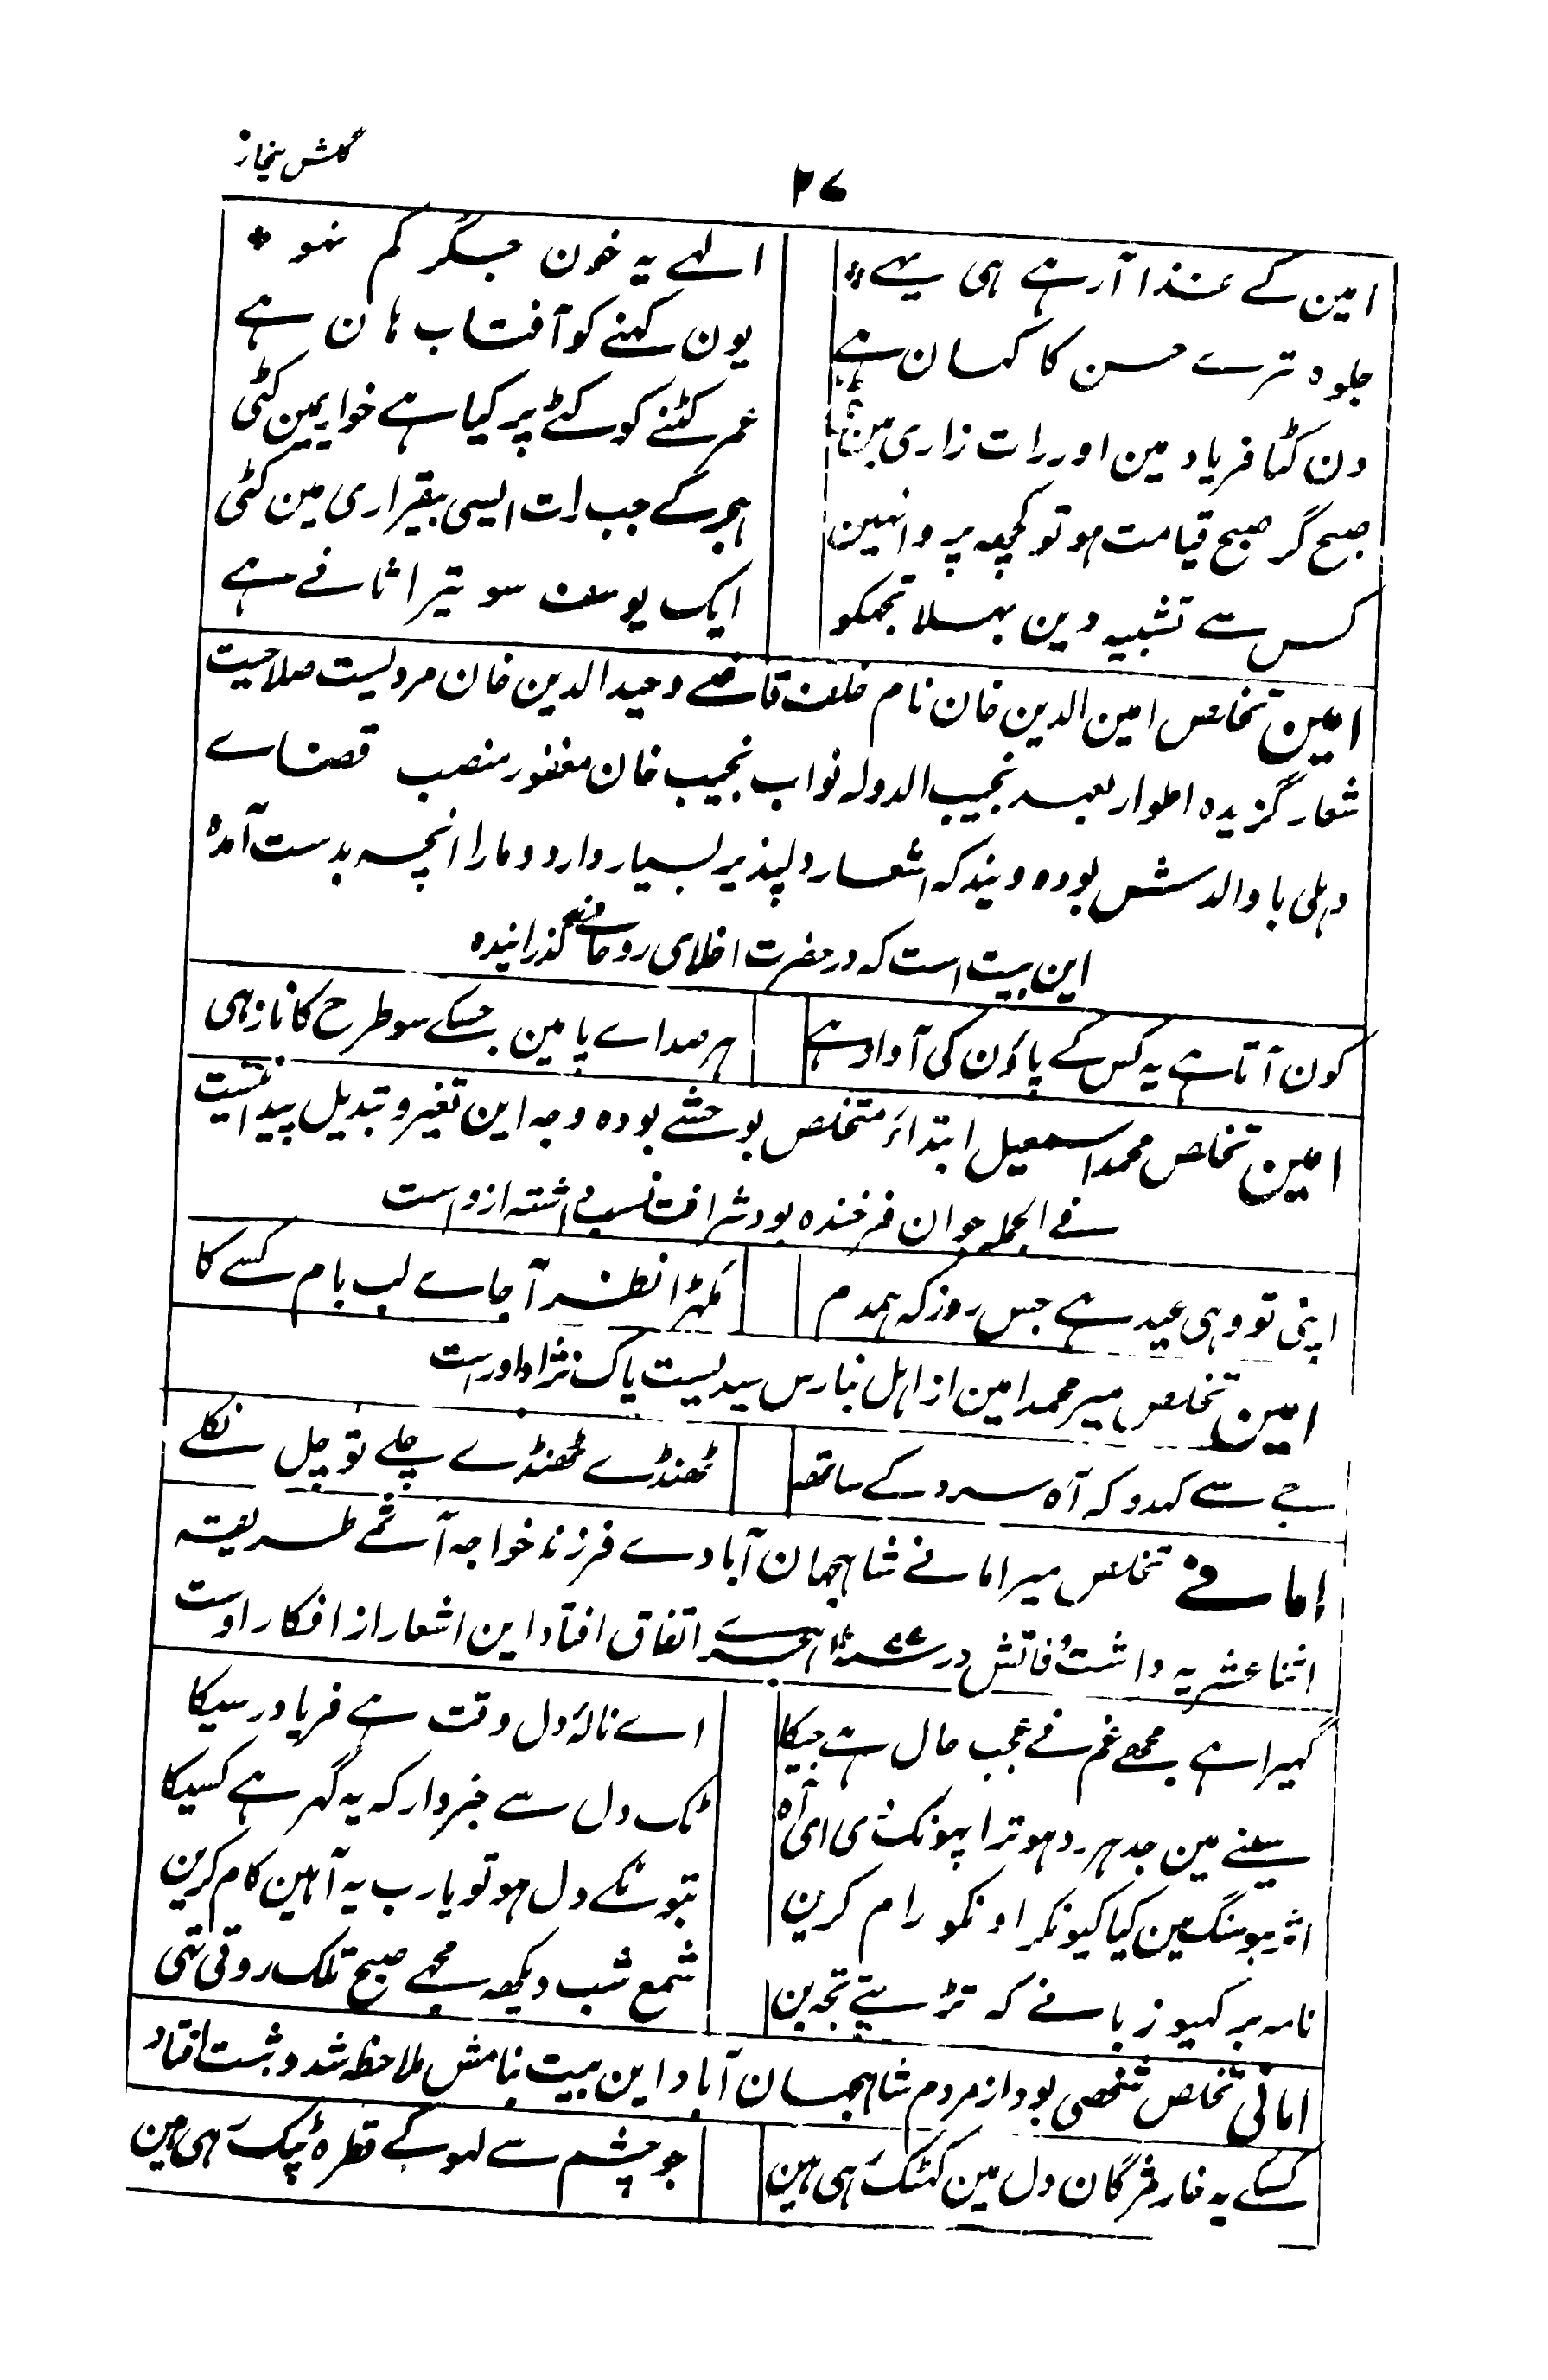 ۲۷
گلشن بیخار
امین کے غذا آرہے ہی یہے * الہے یہ خون جگر کم نہو *
جلوہ ترے حسن کا کہان ہے یون کہنے کو آفتاب ہان ہے
دن کٹا فریاد مین اور رات زاری مین کٹی عمر کٹنے کو کٹے پر کیا ہے خواریمین کٹی
صبح گر صبح قیامت ہو تو کچھہ پروانہین ہجر کے جب رات ایسی بیقراری مین کٹی
کس سے تشبیہ دین بھلا تجھکو ایک یوسف سو تیرا ثانے ہے
امین تخلص امین الدین خان نام خلف قاضے وحید الدین خان مردیست صلاحیت
شعار گزیدہ اطوار بعہد نجیب الدولہ نواب نجیب خان مغفور منصب قضاے
دہلی با والدش بودہ اشعار دلپذیر بسیار دارد و مارا انچہ بدست آمدہ
این بیت است کہ در حضرت اخلای روحانے گذرانیدہ
کون آتا ہے یہ کس کے پاؤن کی آواز ہے ہر صداے پا مین جسکے سو طرح کا ناز ہی
امین تخلص محمد اسمعیل ابتداءً متخلص بوحشے بودہ وجہ این تغیر و تبدیل پیدا نیست
فے الجملہ جوان فرخندہ بود شرافت نسبے داشتہ ازوست
اپنی تو وہی عید ہے جس روز کہ ہمدم مکھڑا نظر آجاے لب بام کسے کا
امین تخلص میر محمد امین از اہل بنارس سیدیست پاک نژاد اوراست
جے سے کہدو کہ آہ سرد کے ساتھہ ٹھنڈے ٹھنڈے چلے تو چل نکلے
امانے تخلص میر امانے شاہجہان آبادے فرزند خواجہ آثمے طریقہ
اثنا عشریہ داشت وفاتش در ہجرے اتفاق افتاد این اشعار از افکار اوست
گہیرا ہے مجھے غم نے عجب حال ہے جیکا اے نالۂ دل وقت ہے فریاد رسیکا
سینے مین جدہر درد ہو ترا پہونک دی ای آہ ٹک دل سے خبردار کہ یہ گہر ہے کسیکا
اثر ہو سنگ مین کیا کیونکر اونکو رام کرین بتونکے دل ہو تو یارب یہ آہین کام کرین
نامہ بر کہیو زبانے کہ تڑپتے تجہ بن شمع شب دیکھہ مجھے صبح تلک روتی تہی
امانی تخلص شخصی بود از مردم شاہجہان آباد این بیت بنامش ملاحظہ شد و ثبت افتاد
کسکے یہ خار مژگان دل مین کہٹک رہی ہین جو چشم سے لہو کے قطرہ ٹپک رہی ہین